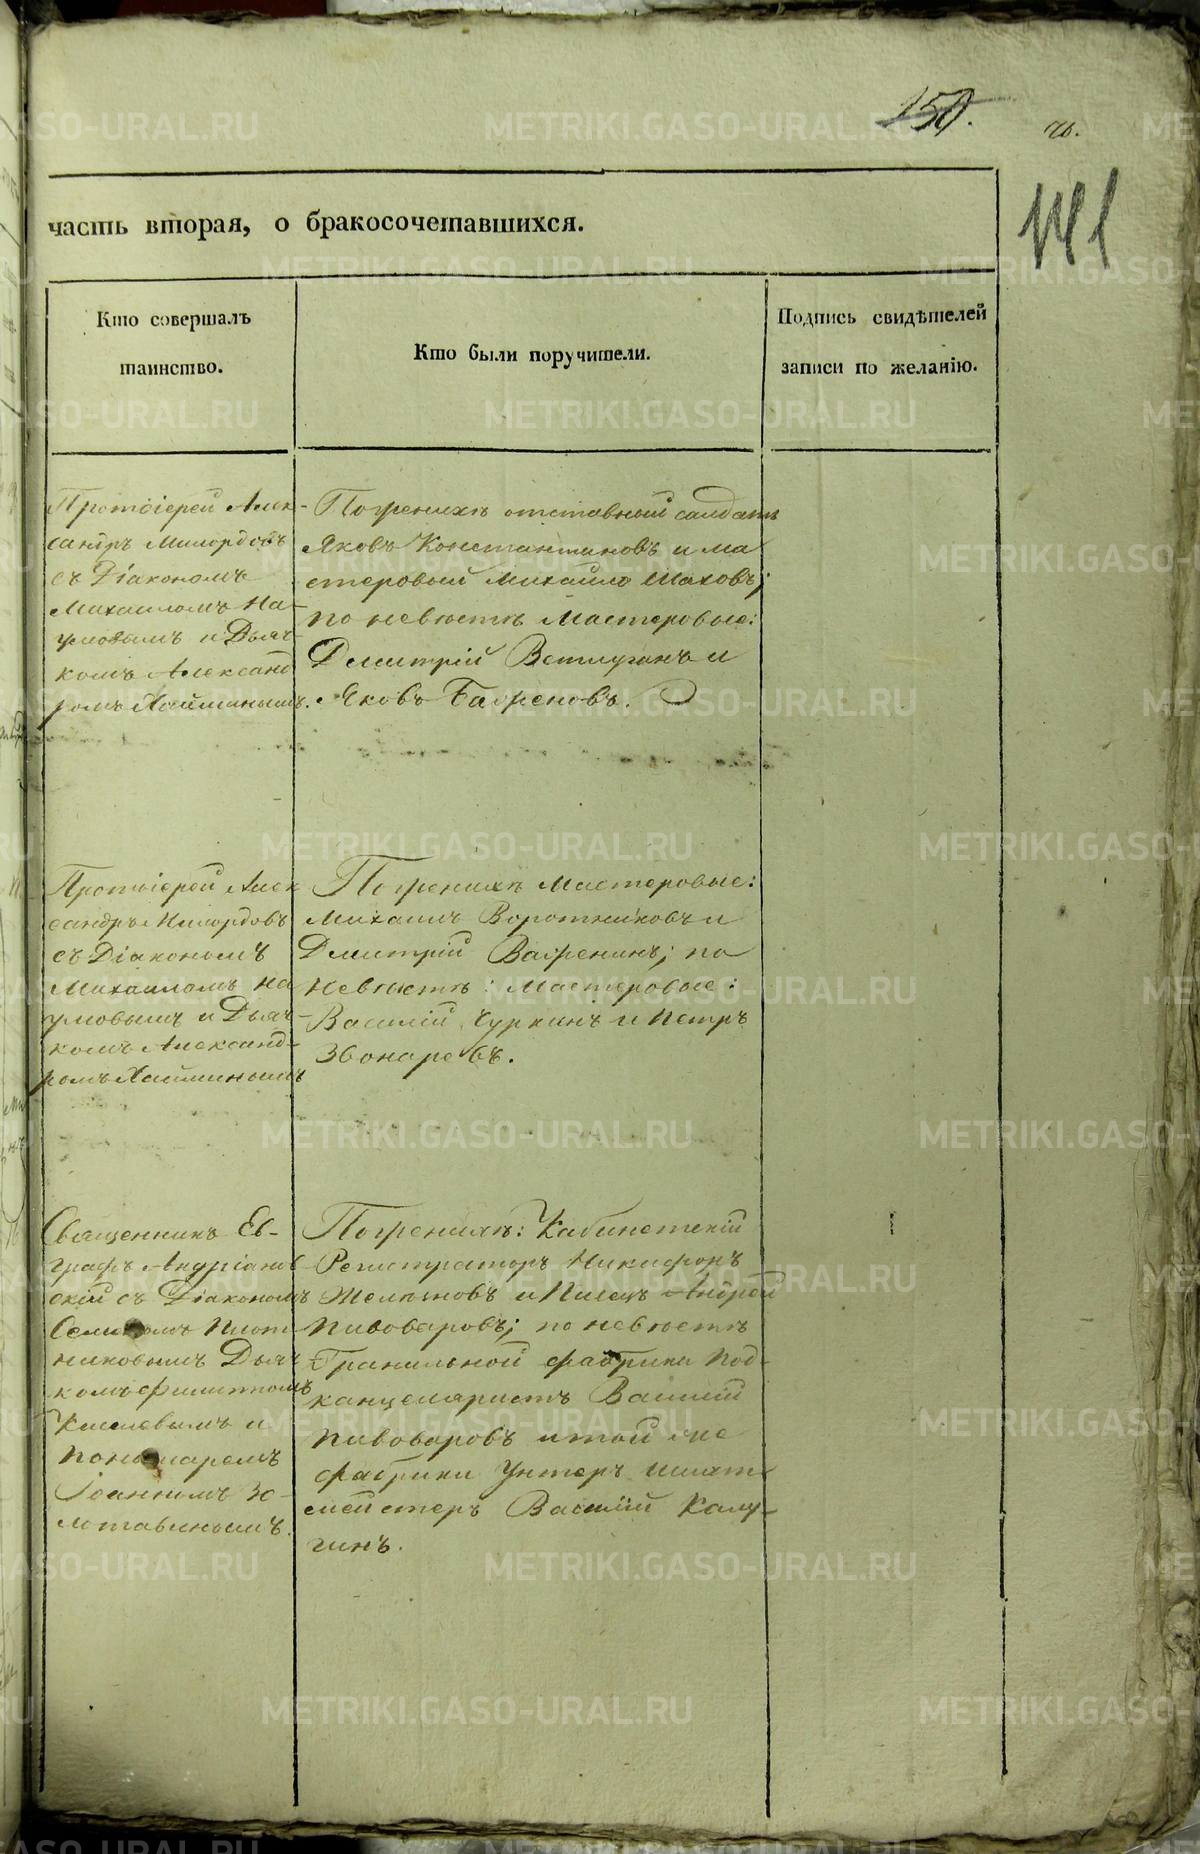 150.
141
часть вторая, о бракосочетавшихся.
Кто совершалъ
таинство.
Кто были поручители.
Подпись свидѣтелей
записи по желанію.
Протоіерей Алек-
сандръ Милордовъ
съ Діакономъ
Михаиломъ На-
умовымъ и Дьяч-
комъ Александ
ромъ Хайминымъ.
По женихѣ отставный салдатъ
Яковъ Константиновъ и ма
стеровый Михайло Шаховъ;
по невѣстѣ Мастеровые:
Дмитрій Ветлуганъ и
Яковъ Баженовъ.
Протоіерей Алек
сандръ Милордовъ
съ Діакономъ
Михаиломъ На
умовымъ и Дьяч-
комъ Александ-
ромъ Хайминымъ
По женихѣ Мастеровые:
Михаилъ Воротниковъ и
Дмитрій Важенинъ; по
невѣстѣ: Мастеровые:
Василій Чуркинъ и Петръ
Звонаревъ.
Священникъ Ев-
графъ Андріанов
скій съ Діакономъ
Плот
никовымъ Дьяч
комъ Филиппомъ
Киселевымъ и
Пономаремъ
Іоанномъ Зо-
лотавинымъ.
По женихѣ: Кабинетскій
Регистраторъ Никифоръ
и Писецъ Андрей
Пивоваровъ; по невѣстѣ
Гранильной фабрики Под-
канцеляристъ Василій
Пивоваровъ и той же
фабрики Унтеръ Шихт-
мейстеръ Василій Калу-
гинъ.
METRIKI.GASO-URAL.RU